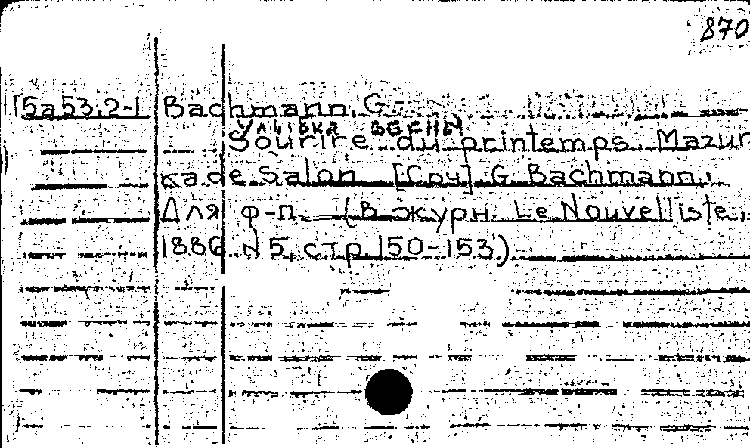 870
Г5а53.2-1 Bachmann, G-
Улыбка весны
Sourire du printemps. Mazur
ka de Salon [Соч] G. Bachmann.
Для ф-п. (В журн. Le Nouvelliste,
1886 N 5, стр 150-153)